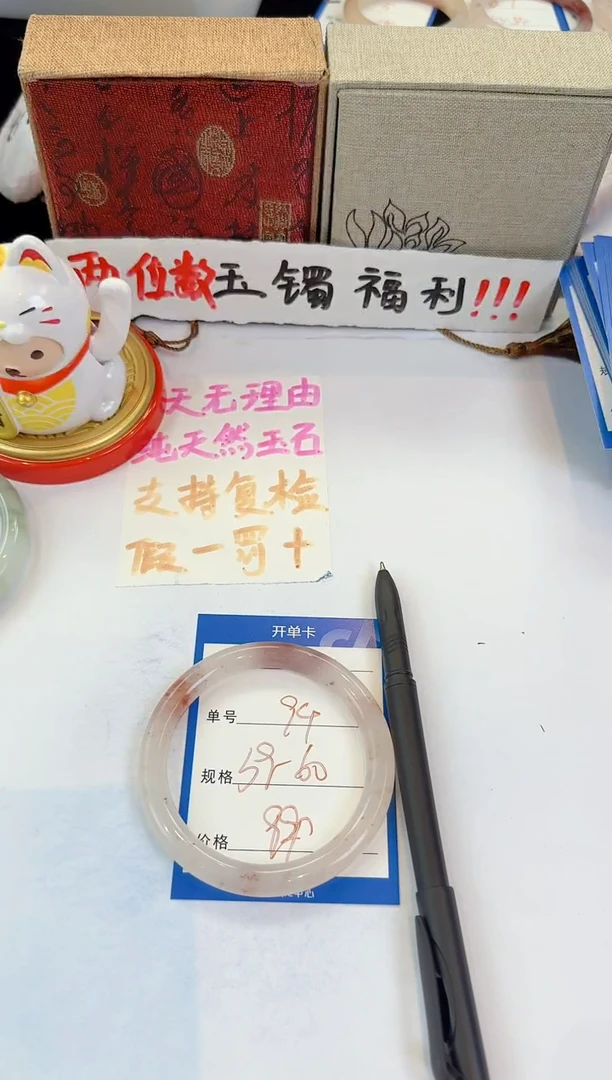 两位数玉镯福利!!!
天无理由
纯天然玉石
支持复检
假一罚十
开单卡
单号 94
规格 59-60
价格